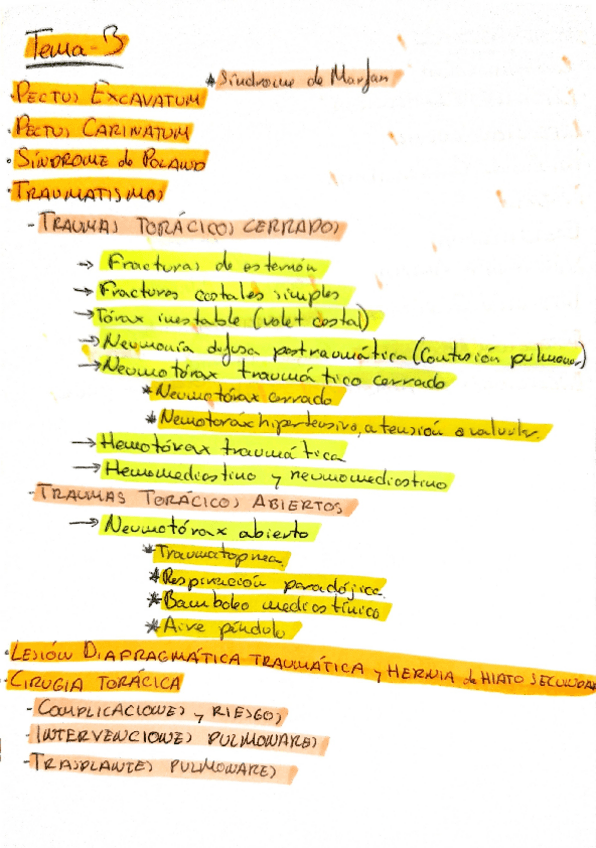 Tema-B
*Síndrome de Marfan
·PECTUS EXCAVATUM
·PECTUS CARINATUM
·SÍNDROME de POLAND
·TRAUMATISMOS
-TRAUMAS TORÁCICOS CERRADOS
→ Fracturas de esternón
→ Fracturas costales simples
→ Tórax inestable (volet costal)
→ Neumonía difusa postraumática (Contusión pulmonar)
→ Neumotórax traumático cerrado
* Neumotórax cerrado
* Nemotoráx hipertensivo, a tensión o valvular.
→ Hemotórax traumática
→ Hemomediastino y neumomediastino
-TRAUMAS TORÁCICOS ABIERTOS
→ Neumotórax abierto
*Traumatopnea
*Respiración paradójica.
*Bamboleo mediastínico
*Aire péndulo
·LESIÓN DIAFRAGMÁTICA TRAUMÁTICA y HERNIA de HIATO
·CIRUGIA TORÁCICA
-COMPLICACIONES y RIESGOS
-INTERVENCIONES PULMONARES
-TRASPLANTES PULMONARES